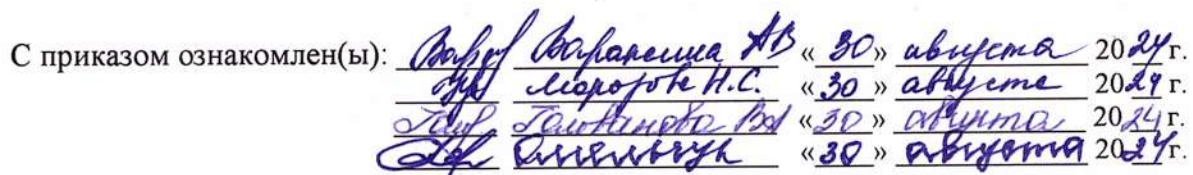 С приказом ознакомлен(ы): Варансина АВ «30» августа 2024 г.
Морозова Н.С. «30» августа 2024 г.
«30» августа 2024 г.
Омельчук «30» августа 2024 г.